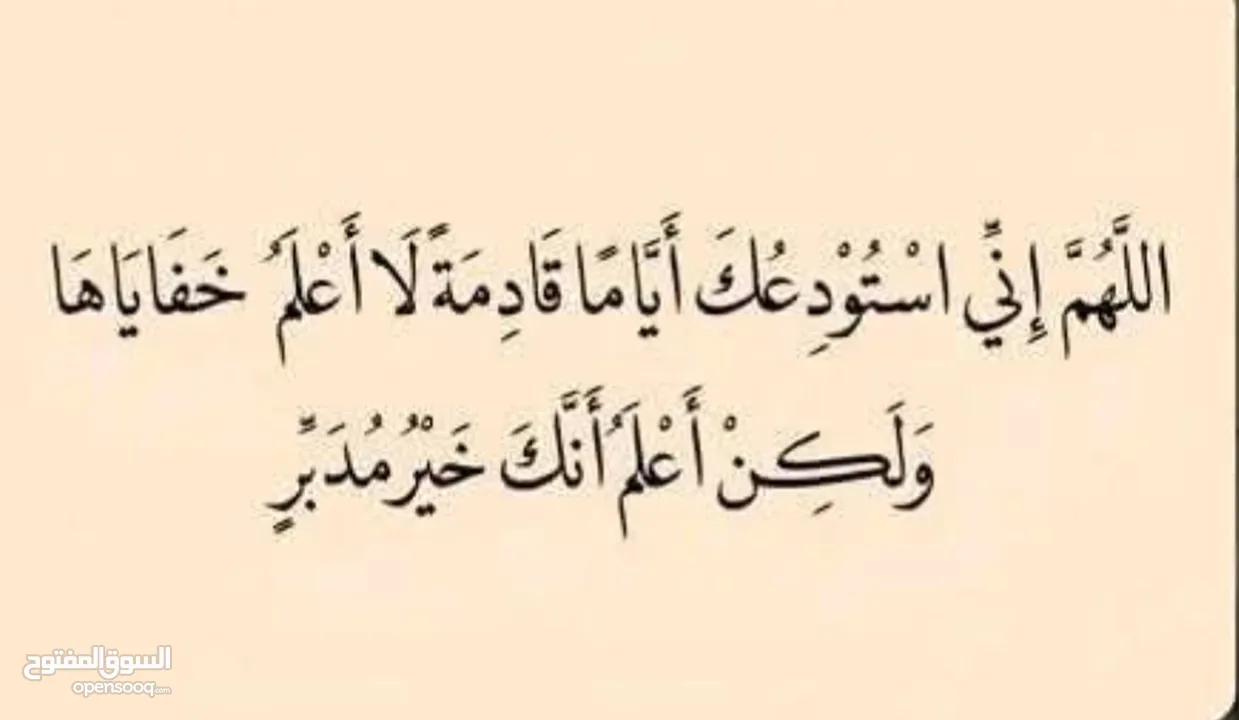 اللَّهُمَّ إِنِّي اسْتُوْدِعُكَ أَيَّامًا قَادِمَةً لَا أَعْلَمُ خَفَايَاهَا
وَلَكِنْ أَعْلَمُ أَنَّكَ خَيْرُ مُدَبِّرٍ
السوق المفتوح
opensooq.com